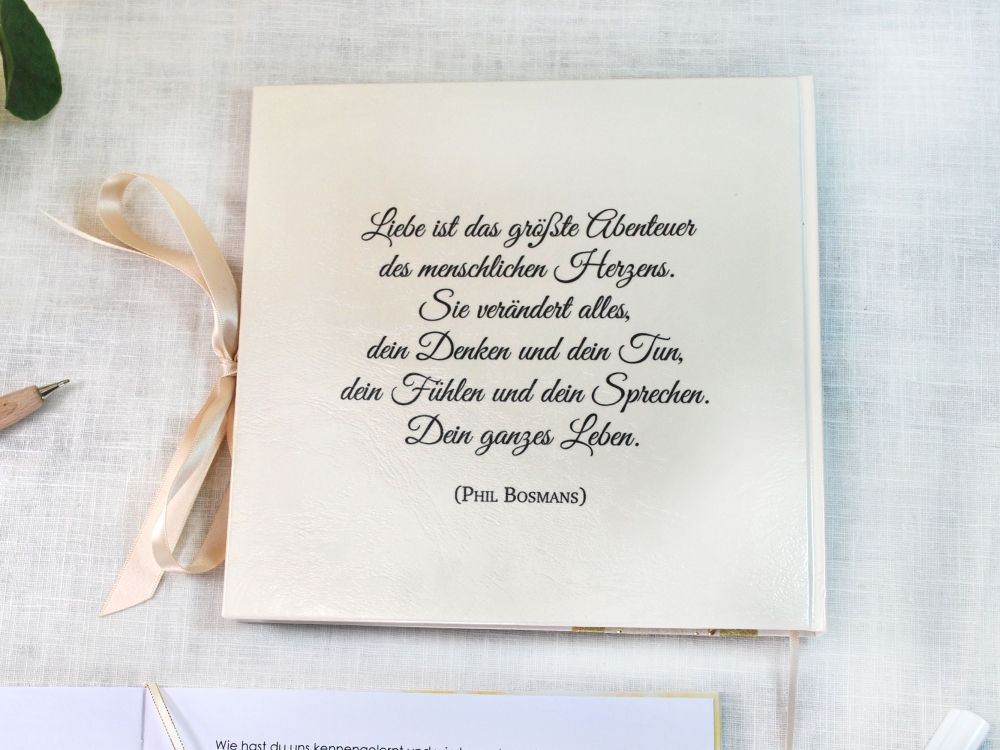 Liebe ist das größte Abenteuer
des menschlichen Herzens.
Sie verändert alles,
dein Denken und dein Tun,
dein Fühlen und dein Sprechen.
Dein ganzes Leben.
(PHIL BOSMANS)
Wie hast du uns kennengelernt und